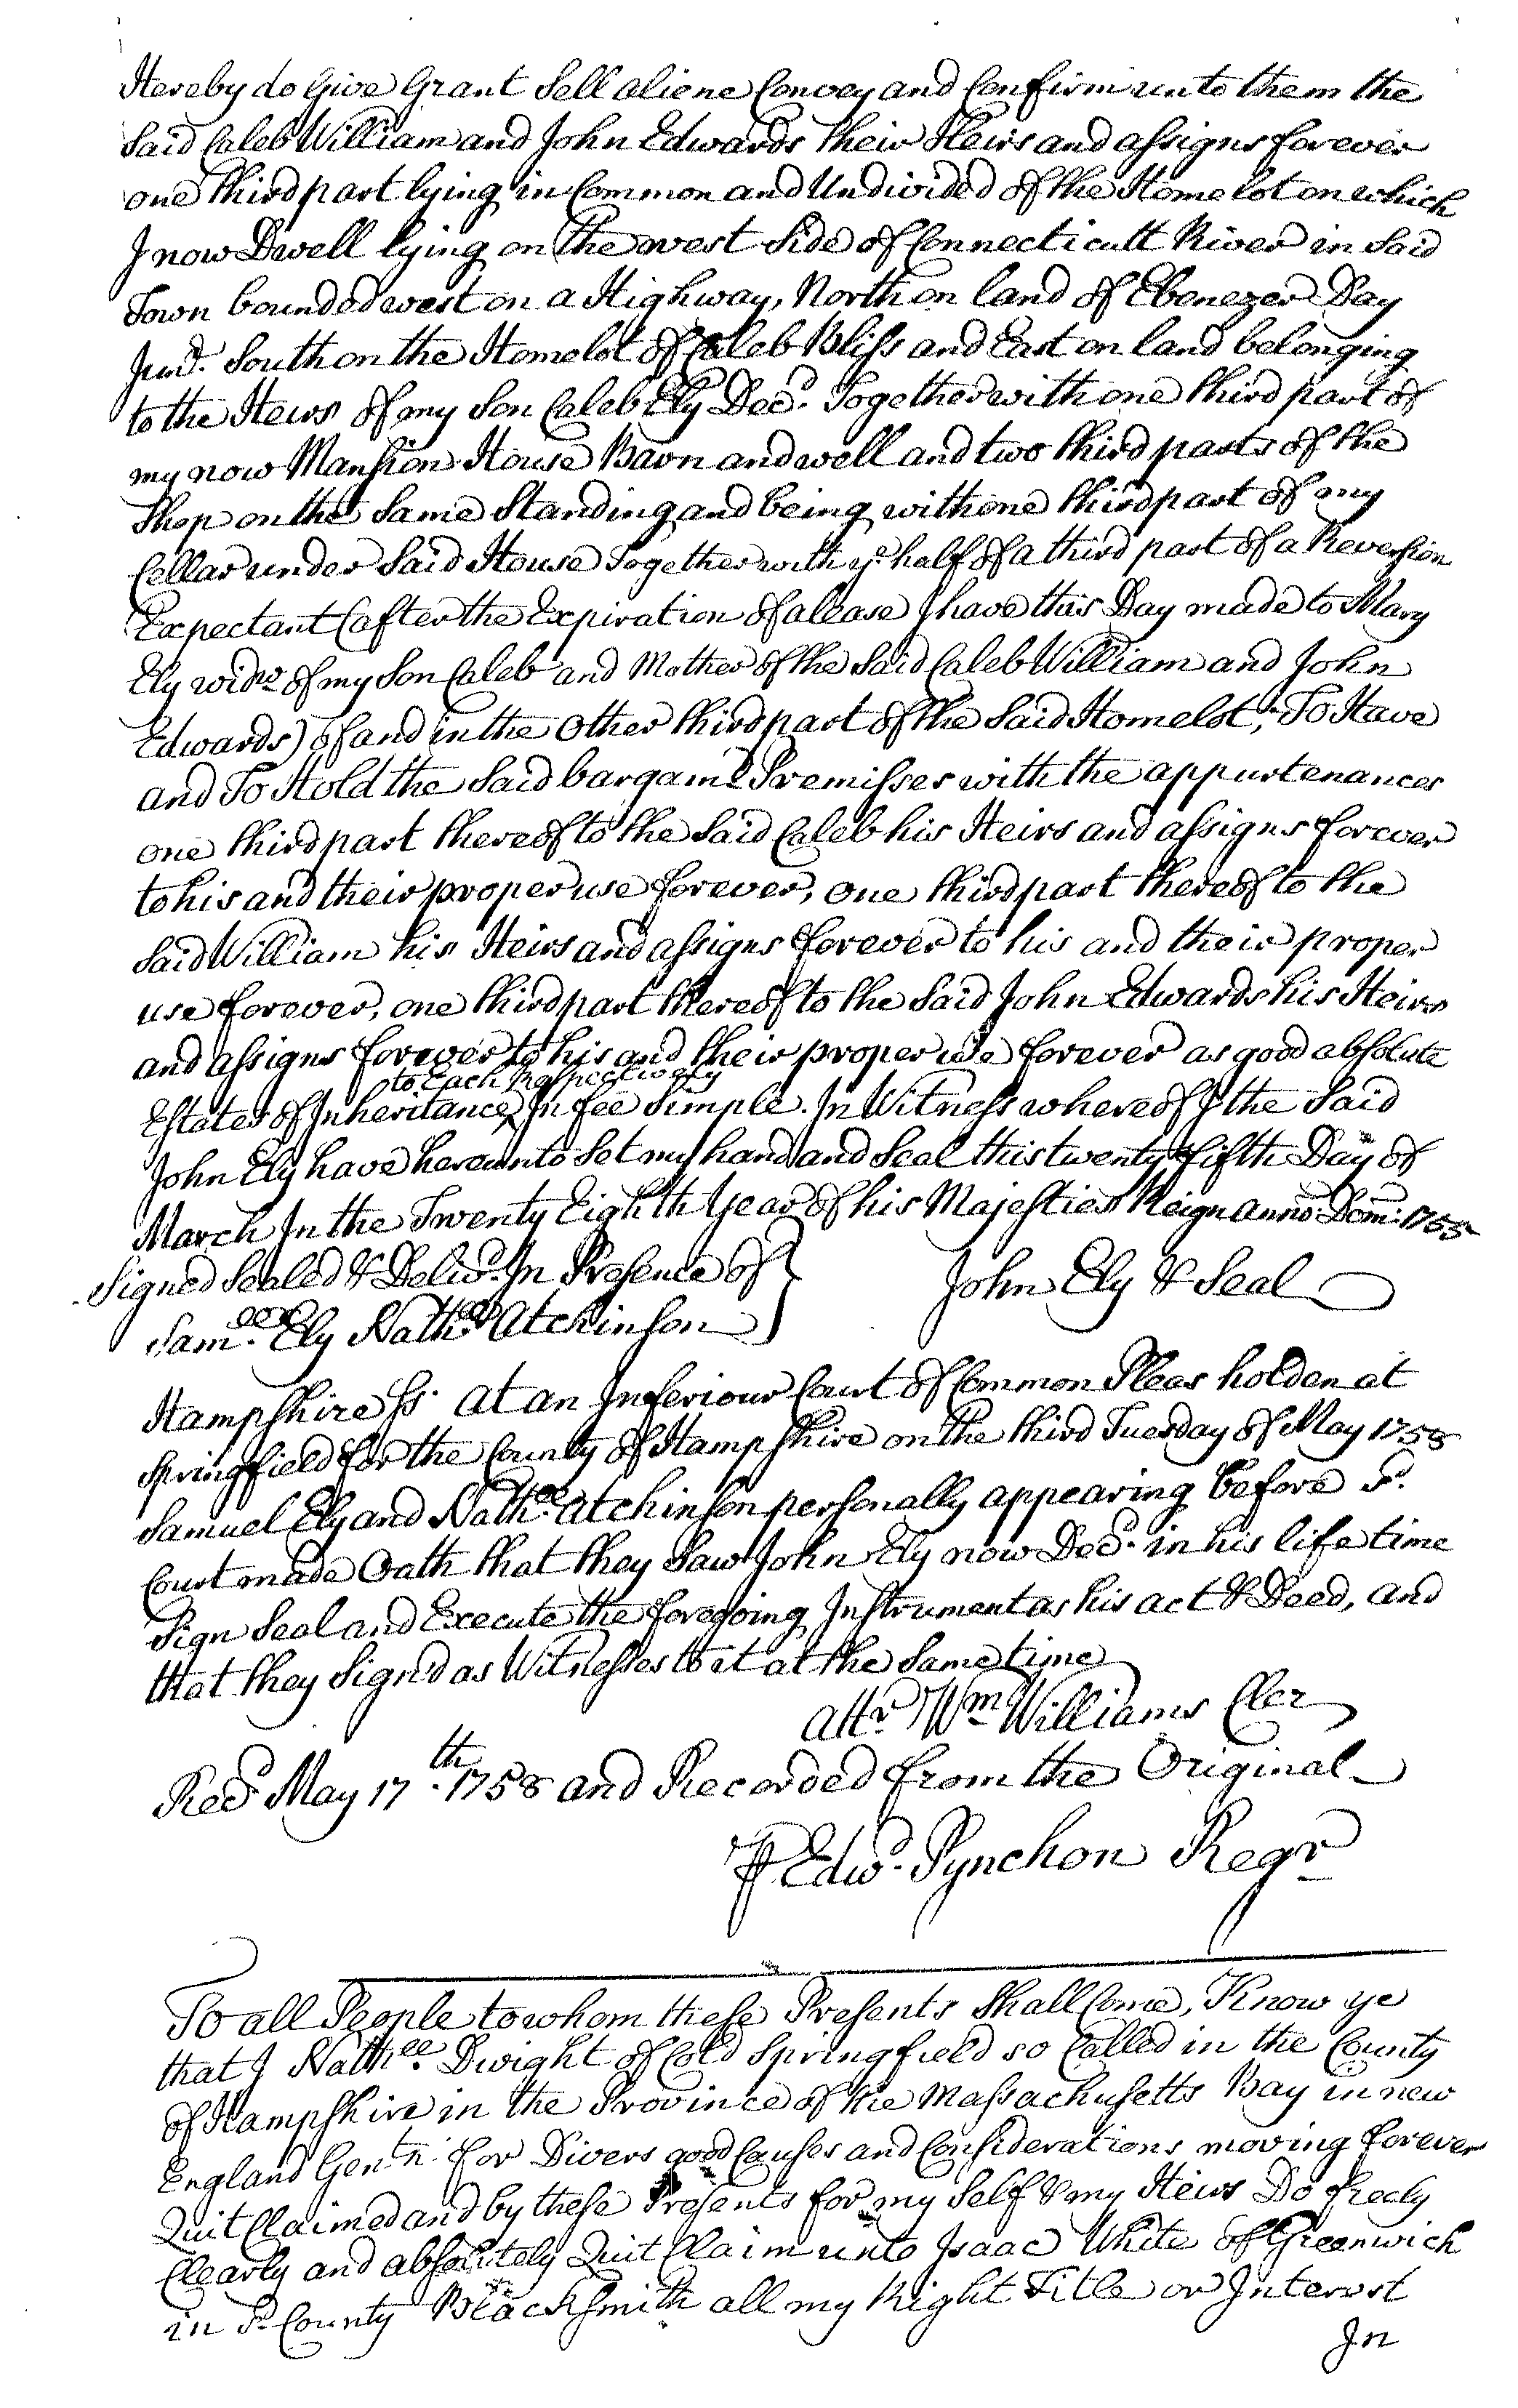 Hereby do Give Grant Sell aliene Convey and Confirm unto them the
Said Caleb William and John Edwards their Heirs and assigns forever
one third part lying in Common and Undivided of the Homelot on which
I now Dwell lying on the west Side of Connecticutt River in Said
Town bounded west on a Highway, North on land of Ebenezer Day
Junr. South on the Homelot of Caleb Bliss and East on land belonging
to the Heirs of my Son Caleb Ely Decd. Together with one third part of
my now Mansion House Barn and well and two third parts of the
Shop on the Same Standing and being with one third part of my
Cellar under Said House Together with ye half of a third part of a Reversion
Expectant (after the Expiration of a lease I have this Day made to Mary
Ely widw of my Son Caleb and Mother of the Said Caleb William and John
Edwards) of and in the Other third part of the Said Homelot, To Have
and To Hold the Said bargain'd Premisses with the appurtenances
one third part thereof to the Said Caleb his Heirs and assigns forever
to his and their proper use forever, one third part thereof to the
Said William his Heirs and assigns forever to his and their proper
use forever, one third part thereof to the Said John Edwards his Heirs
and assigns forever to his and their proper use forever as good absolute
to Each Respectively
Estates of Inheritance In fee Simple. In Witness whereof I the Said
John Ely have hereunto Set my hand and Seal this twenty fifth Day of
March In the Twenty Eighth Year of his Majesties Reign anno Dom: 1755
Signed Sealed & Delivd. In Presence of
John Ely & Seal
Samll. Ely Nathll. Atchinson
Hampshire Ss. At an Inferiour Court of Common Pleas holden at
Springfield for the County of Hampshire on the third Tuesday of May 1758
Samuel Ely and Nathll. Atchinson personally appearing before Sd.
Court made Oath that they Saw John Ely now Decd. in his life time
Sign Seal and Execute the foregoing Instrument as his act & Deed, and
that they Sign'd as Witnesses to it at the Same time
Attr Wm Williams Cler
Recd May 17th. 1758 and Recorded from the Original
⅌ Edwd. Pynchon Regr
To all People to whom these Presents Shall Come, Know ye
that I Nathll. Dwight of Cold Springfield so Called in the County
of Hampshire in the Province of the Massachusetts Bay in new
England Gentn. for Divers good Causes and Considerations moving forever
Quit Claimed and by these Presents for my Self & my Heirs Do freely
Clearly and absolutely Quit Claim unto Isaac White of Greenwich
in Sd. County Blacksmith all my Right Title or Interest
In